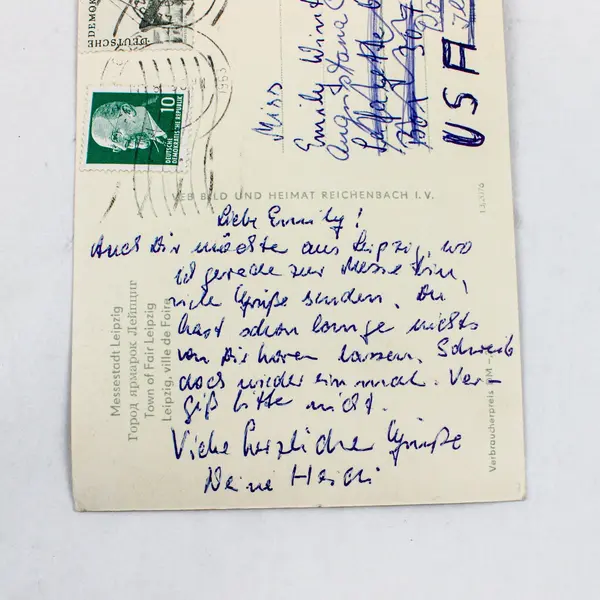 DEUTSCHE DEMOK
10
DEUTSCHE
DEMOKRATISCHE REPUBLIK
1963
Miss
Emily
USA
VEB BILD UND HEIMAT REICHENBACH I. V.
Liebe Emily!
Auch Dir möchte aus Leipzig, wo
ich gerade zur Messe bin,
viele Grüße senden. Du
hast schon lange nichts
von Dir hören lassen. Schreib
doch wieder einmal. Ver-
giß bitte nicht.
Viele herzliche Grüße
Deine Heidi
Messestadt Leipzig
Город ярмарок Лейпциг
Town of Fair Leipzig
Leipzig, ville de Foire
Verbraucherpreis